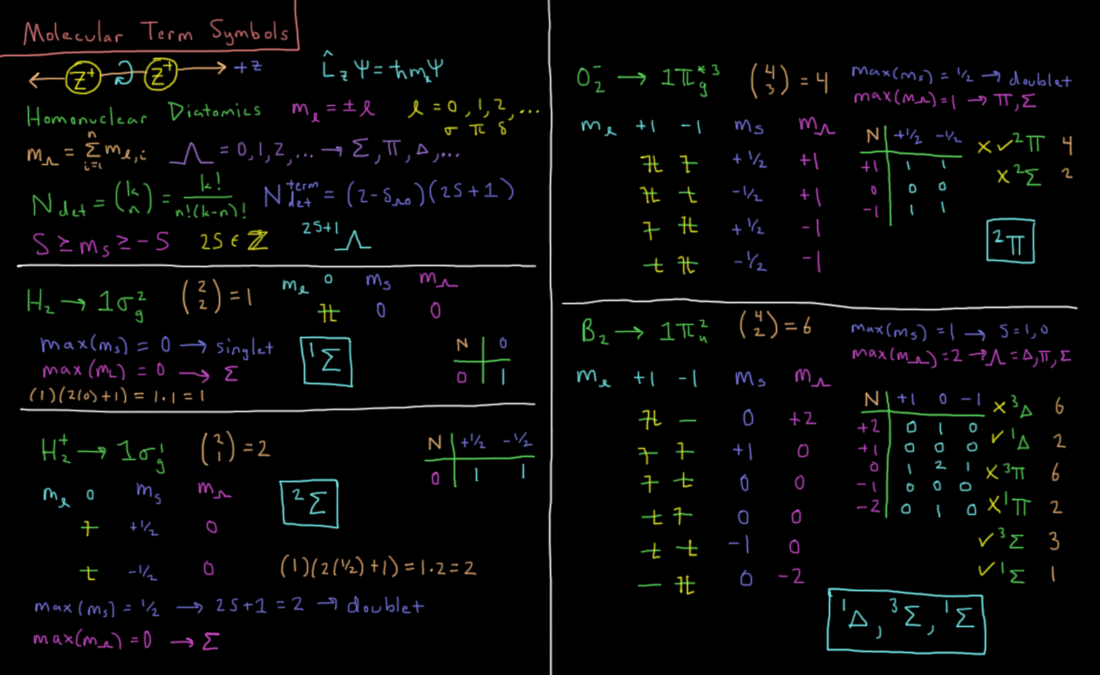 Molecular Term Symbols
Z⁺ Z⁺ +z
L̂_z Ψ = ħm_ℓΨ
Homonuclear Diatomics m_ℓ = ±ℓ ℓ = 0, 1, 2, ...
σ π δ
m_Λ = Σ_{i=1}^{n} m_{ℓ,i} Λ = 0, 1, 2, ... → Σ, Π, Δ, ...
N_det = (k n) = k!/n!(k-n)! N_det^term = (2-δ_Λ0)(2S+1)
S ≥ m_s ≥ -S 2S ∈ ℤ ^{2S+1}Λ
H₂ → 1σ_g² (2 2) = 1 m_ℓ 0 m_s m_Λ
0 0
max(m_s) = 0 → singlet ¹Σ N 0
max(m_L) = 0 → Σ 0 1
(1)(2(0)+1) = 1·1 = 1
H₂⁺ → 1σ_g¹ (2 1) = 2 N +1/2 -1/2
0 1 1
m_ℓ 0 m_s m_Λ ²Σ
+1/2 0
-1/2 0 (1)(2(1/2)+1) = 1·2 = 2
max(m_s) = 1/2 → 2S+1 = 2 → doublet
max(m_Λ) = 0 → Σ
O₂⁻ → 1π_g*³ (4 3) = 4 max(m_s) = 1/2 → doublet
max(m_Λ) = 1 → Π, Σ
m_ℓ +1 -1 m_s m_Λ N +1/2 -1/2
+1/2 +1 +1 1 1 × ✓ ²Π 4
-1/2 +1 0 0 0 × ²Σ 2
+1/2 -1 -1 1 1
-1/2 -1 ²Π
B₂ → 1π_u² (4 2) = 6 max(m_s) = 1 → S = 1, 0
max(m_Λ) = 2 → Λ = Δ, Π, Σ
m_ℓ +1 -1 m_s m_Λ N +1 0 -1 × ³Δ 6
— 0 +2 +2 0 1 0 ✓ ¹Δ 2
+1 0 +1 0 0 0
0 0 0 1 2 1 × ³Π 6
0 0 -1 0 0 0
-1 0 -2 0 1 0 × ¹Π 2
— 0 -2 ✓ ³Σ 3
✓ ¹Σ 1
¹Δ, ³Σ, ¹Σ